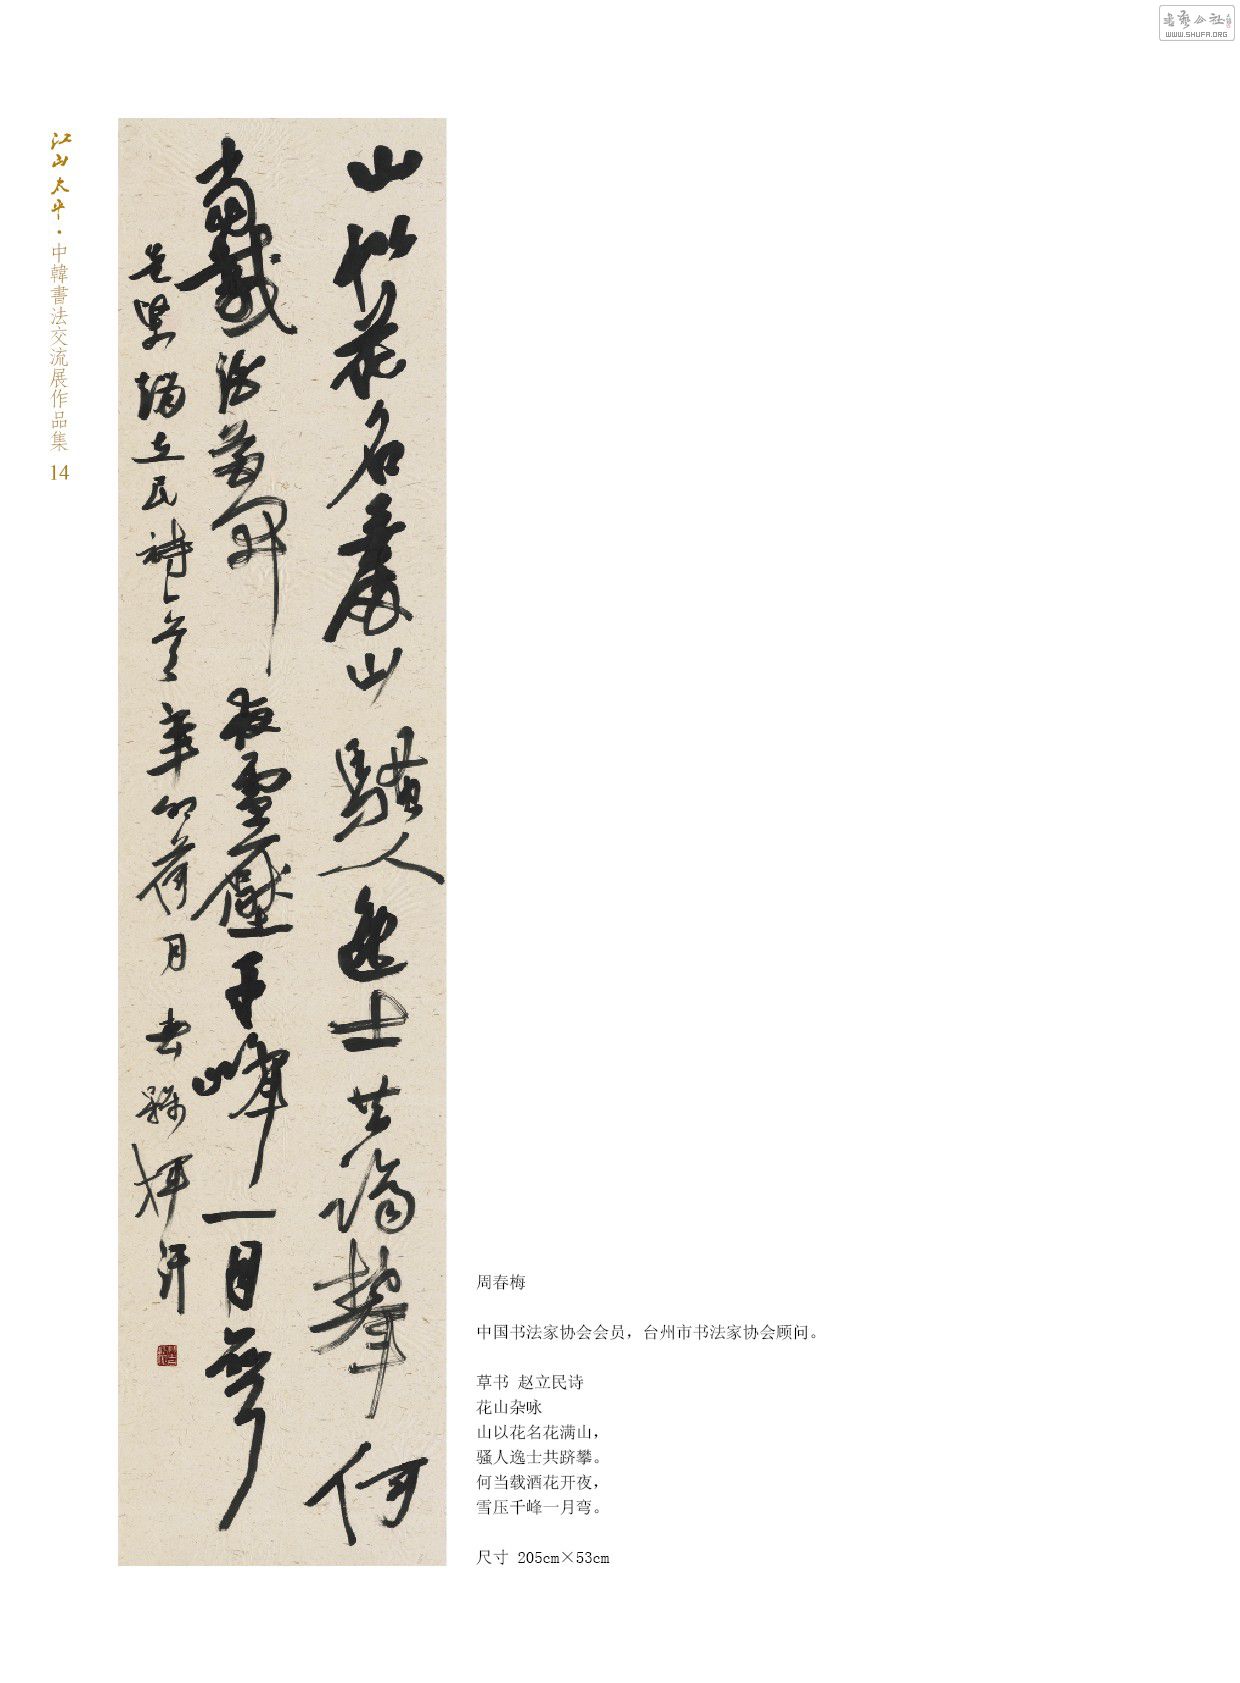 书艺公社
WWW.SHUFA.ORG
江山太平·中韓書法交流展作品集 14
山以花名花滿山騷人逸士共躋攀何
當載酒花開夜雪壓千峰一月彎
立民詩一首 辛卯荷月 春梅
周春梅
中国书法家协会会员，台州市书法家协会顾问。
草书 赵立民诗
花山杂咏
山以花名花满山，
骚人逸士共跻攀。
何当载酒花开夜，
雪压千峰一月弯。
尺寸 205cm×53cm